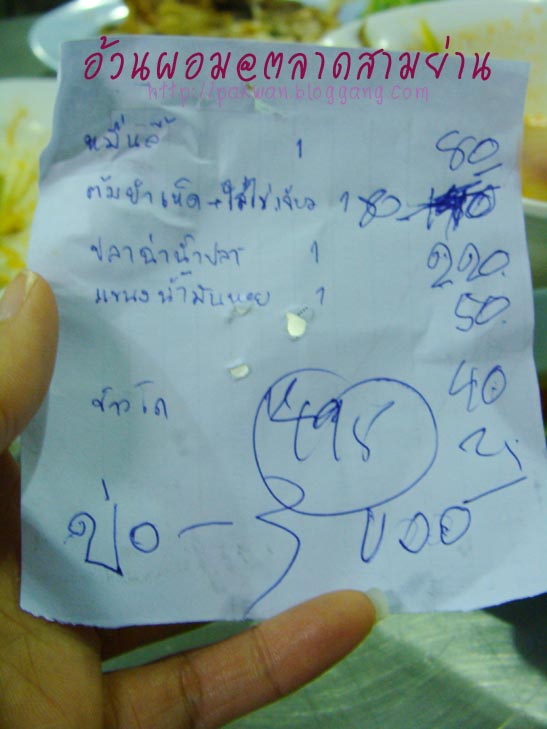 อ้วนผอม@ตลาดสามย่าน
http://pakwan.bloggang.com
หมี่นสี้ 1 80
ต้มยำเห็ด+ใส่ไข่เจียว 1 80
ปลาฉ่าน้ำปลา 1 220
แขนงน้ำมันหอย 1 50
ข้าวโถ 40
495 25
ขวด